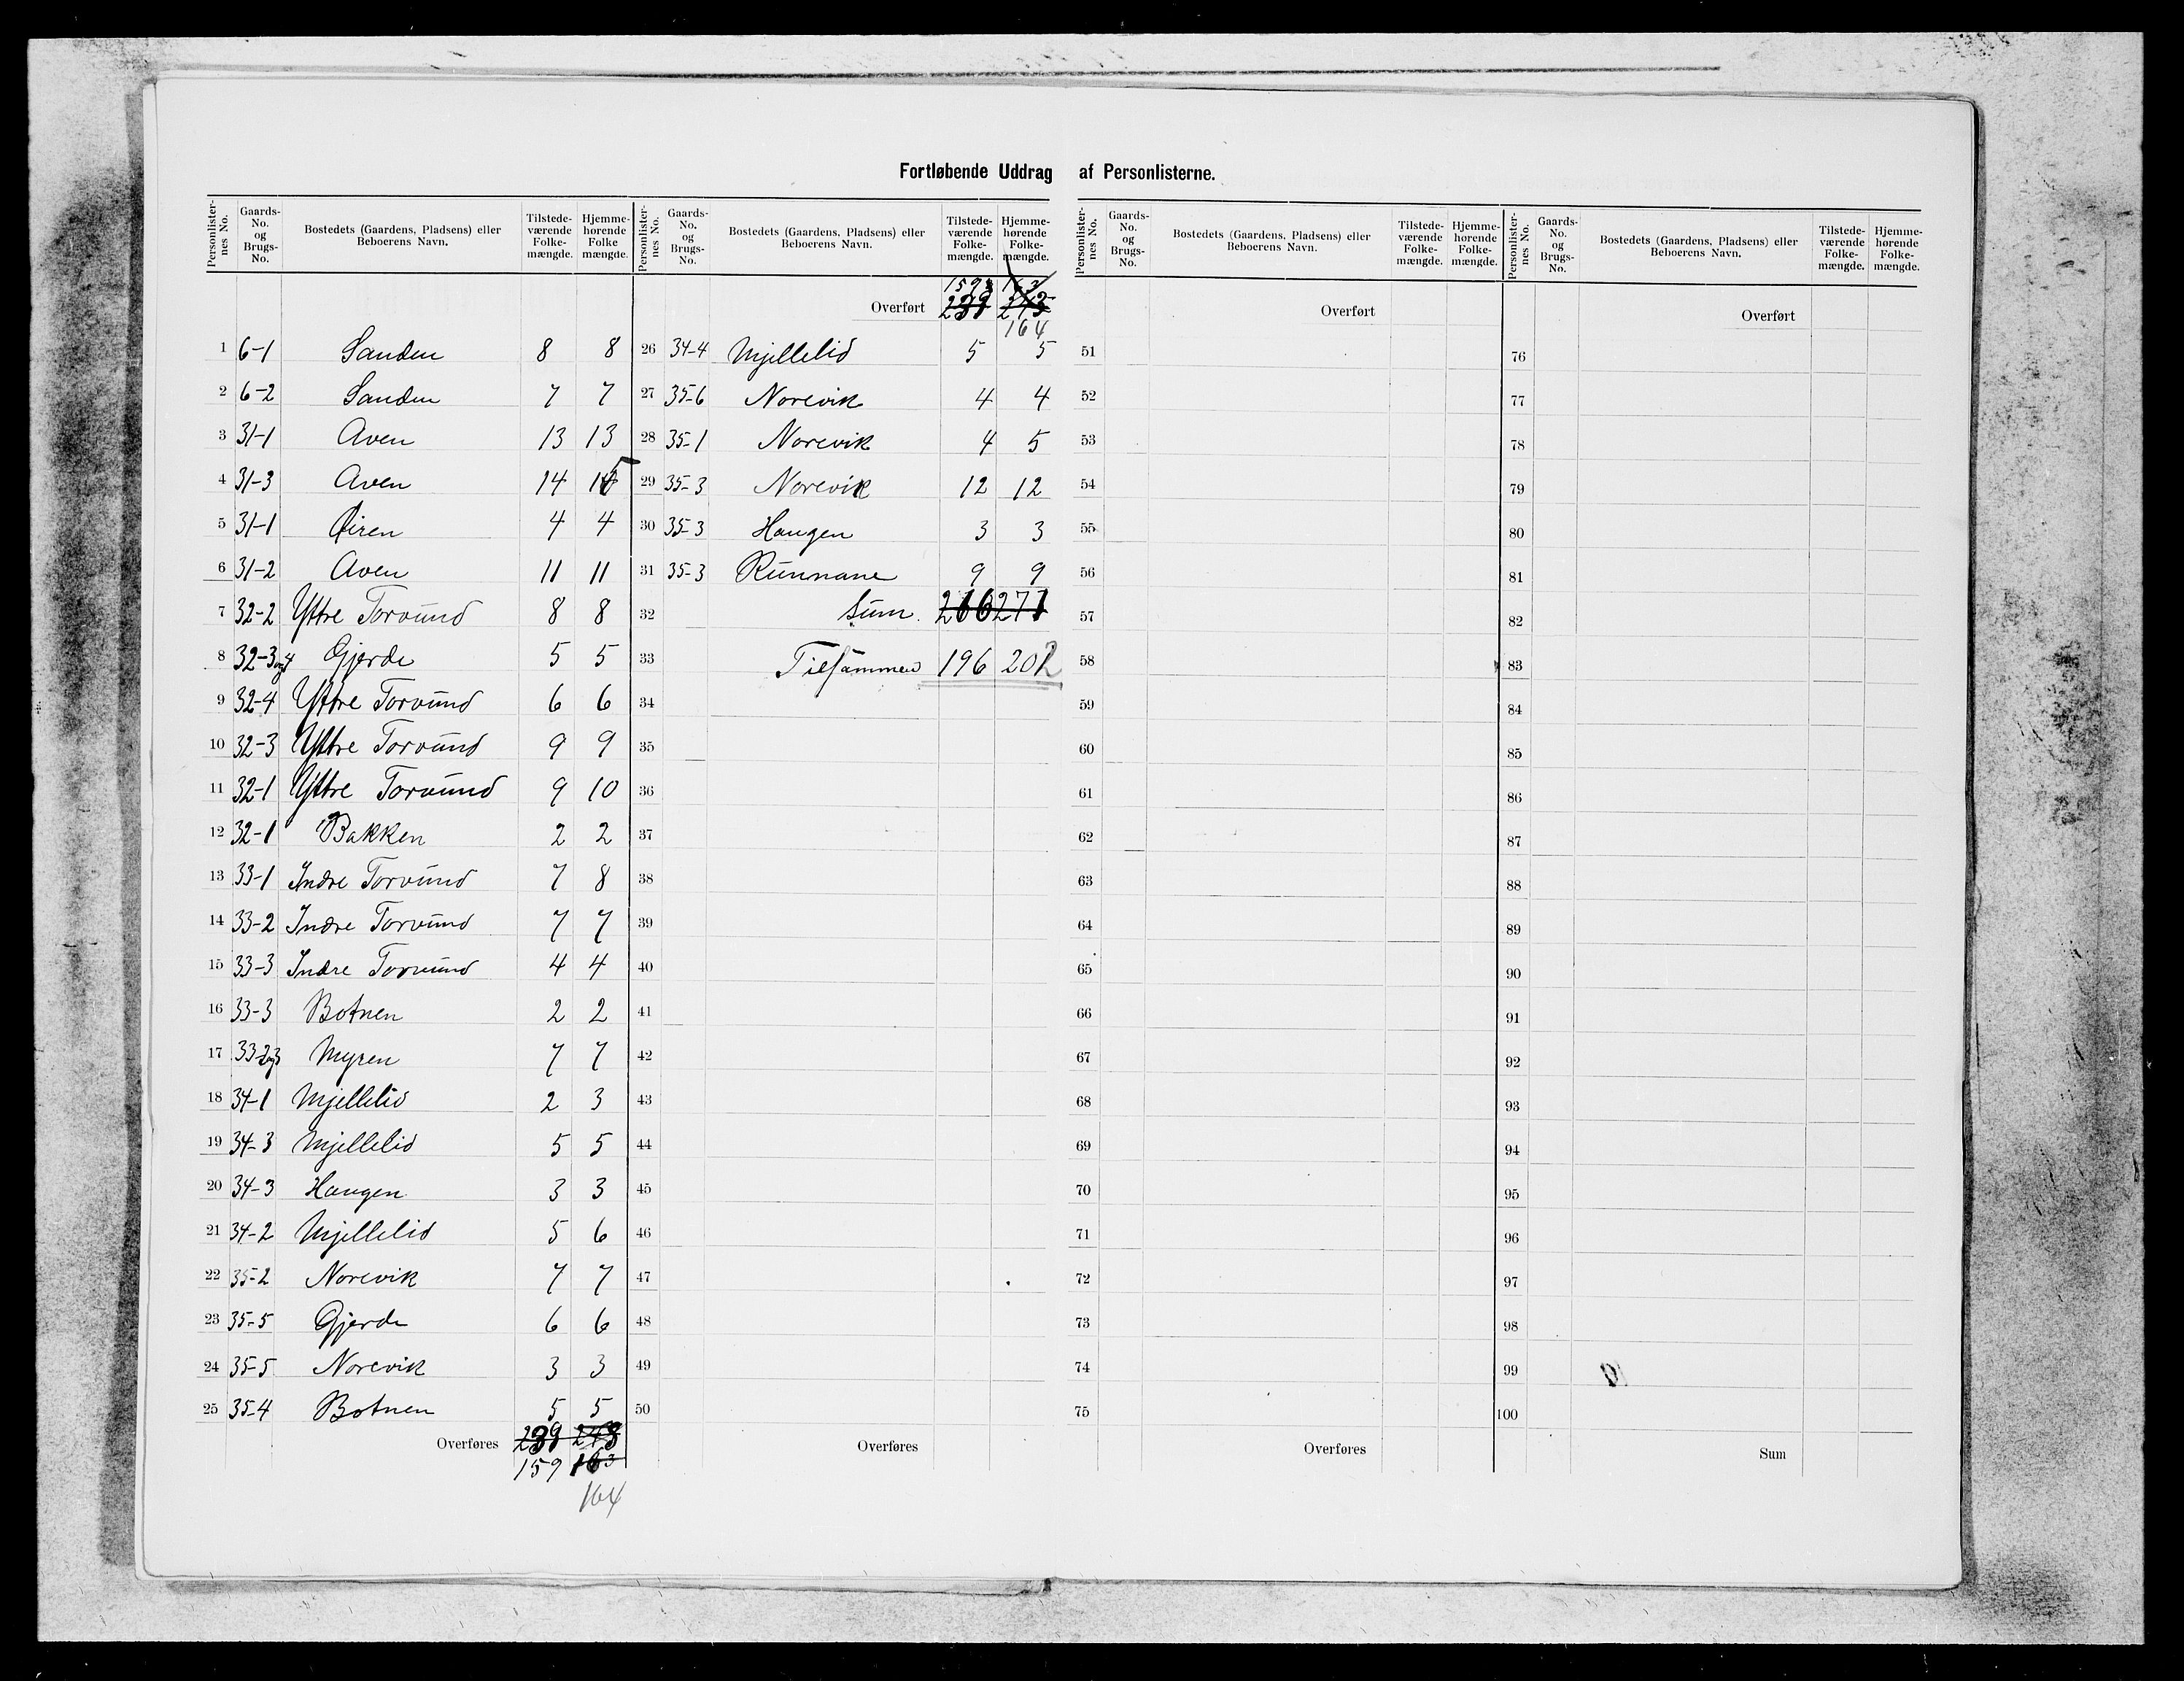 Fortløbende Uddrag af Personlisterne.
Personlister-nes No. | Gaards-No. og Brugs-No. | Bostedets (Gaardens, Pladsens) eller Beboerens Navn. | Tilstede-værende Folke-mængde. | Hjemme-hørende Folke mængde.
1 6-1 Sanden 8 8
2 6-2 Sanden 7 7
3 31-1 Aven 13 13
4 31-3 Aven 14 15
5 31-1 Øiren 4 4
6 31-2 Aven 11 11
7 32-2 Yttre Torvund 8 8
8 32-3 og 4 Gjerde 5 5
9 32-4 Yttre Torvund 6 6
10 32-3 Yttre Torvund 9 9
11 32-1 Yttre Torvund 9 10
12 32-1 Bakken 2 2
13 33-1 Indre Torvund 7 8
14 33-2 Indre Torvund 7 7
15 33-3 Indre Torvund 4 4
16 33-3 Botnen 2 2
17 33-2 og 3 Myren 7 7
18 34-1 Mjellelid 2 3
19 34-3 Mjellelid 5 5
20 34-3 Haugen 3 3
21 34-2 Mjellelid 5 6
22 35-2 Norevik 7 7
23 35-5 Gjerde 6 6
24 35-5 Norevik 3 3
25 35-4 Botnen 5 5
Overføres 239 243
159 163
164
Personlister-nes No. | Gaards-No. og Brugs-No. | Bostedets (Gaardens, Pladsens) eller Beboerens Navn. | Tilstede-værende Folke-mængde. | Hjemme-hørende Folke-mængde.
159 163
Overført 239 243
164
26 34-4 Mjellelid 5 5
27 35-6 Norevik 4 4
28 35-1 Norevik 4 5
29 35-3 Norevik 12 12
30 35-3 Haugen 3 3
31 35-3 Runnane 9 9
32 Sum. 266 271
33 Tilsammen 196 202
34
35
36
37
38
39
40
41
42
43
44
45
46
47
48
49
50
Overføres
Personlister-nes No. | Gaards-No. og Brugs-No. | Bostedets (Gaardens, Pladsens) eller Beboerens Navn. | Tilstede-værende Folke-mængde. | Hjemme-hørende Folke-mængde.
Overført
51
52
53
54
55
56
57
58
59
60
61
62
63
64
65
66
67
68
69
70
71
72
73
74
75
Overføres
Personlister-nes No. | Gaards-No. og Brugs-No. | Bostedets (Gaardens, Pladsens) eller Beboerens Navn. | Tilstede-værende Folke-mængde. | Hjemme-hørende Folke-mængde.
Overført
76
77
78
79
80
81
82
83
84
85
86
87
88
89
90
91
92
93
94
95
96
97
98
99
100
Sum